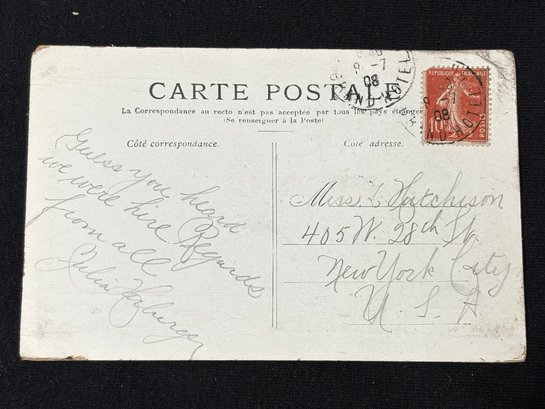 CARTE POSTALE
La Correspondance au recto n'est pas acceptée par tous les pays étrangers
(Se renseigner à la Poste)
Côté correspondance.
Côté adresse.
Guess you heard
we were hire Regards
from all
Julia
Miss Hutchison
405 W. 28th St.
New York City
U. S. A
REPUBLIQUE FRANÇAISE
10
POSTES
8 -7
08
GRAND HOTEL
8 -7
08
GRAND HOTEL